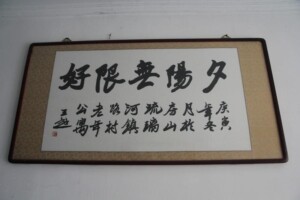 夕陽無限好
庚寅
年冬
月於
房山
琉璃
河鎮
路村
老年
公寓
王